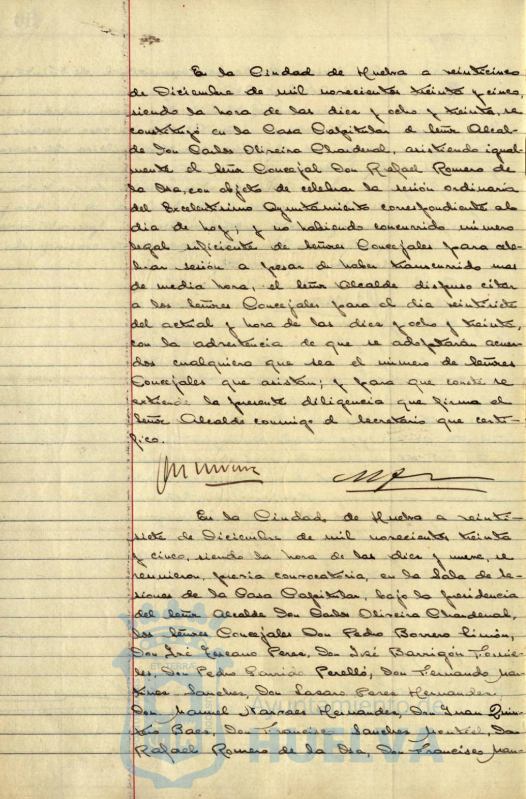 En la Ciudad de Huelva a veinticinco
de Diciembre de mil novecientos treinta y cinco,
siendo la hora de las diez y ocho y treinta, se
constituyó en la Casa Capitular el Señor Alcal-
de Don Carlos Oliveira Chardenal, asistiendo igual-
mente el Señor Concejal Don Rafael Romero de
la Osa, con objeto de celebrar la sesión ordinaria
del Excelentísimo Ayuntamiento correspondiente al
día de hoy; y no habiendo concurrido número
legal suficiente de Señores Concejales para cele-
brar sesión a pesar de haber transcurrido mas
de media hora, el Señor Alcalde dispuso citar
a los Señores Concejales para el día veintisiete
del actual y hora de las diez y ocho y treinta,
con la advertencia de que se adoptarán acuer-
dos cualquiera que sea el número de Señores
Concejales que asistan; y para que conste se
extiende la presente diligencia que firma el
Señor Alcalde conmigo el Secretario que certi-
fico.
En la Ciudad de Huelva a veinti-
siete de Diciembre de mil novecientos treinta
y cinco, siendo la hora de las diez y nueve, se
reunieron, previa convocatoria, en la Sala de Se-
siones de la Casa Capitular, bajo la presidencia
del Señor Alcalde Don Carlos Oliveira Chardenal,
los Señores Concejales Don Pedro Borrero Limón,
Don José Lescano Perez, Don José Barrigón Fornie-
les, Don Pedro Garrido Perelló, Don Fernando Mar-
tinez Sanchez, Don Lazaro Perez Hernandez,
Don Manuel Narvaez Hernandez, Don Juan Quin-
tero Baez, Don Francisco Sanchez Montiel, Don
Rafael Romero de la Osa, Don Francisco Man-
Ayuntamiento de
HUELVA